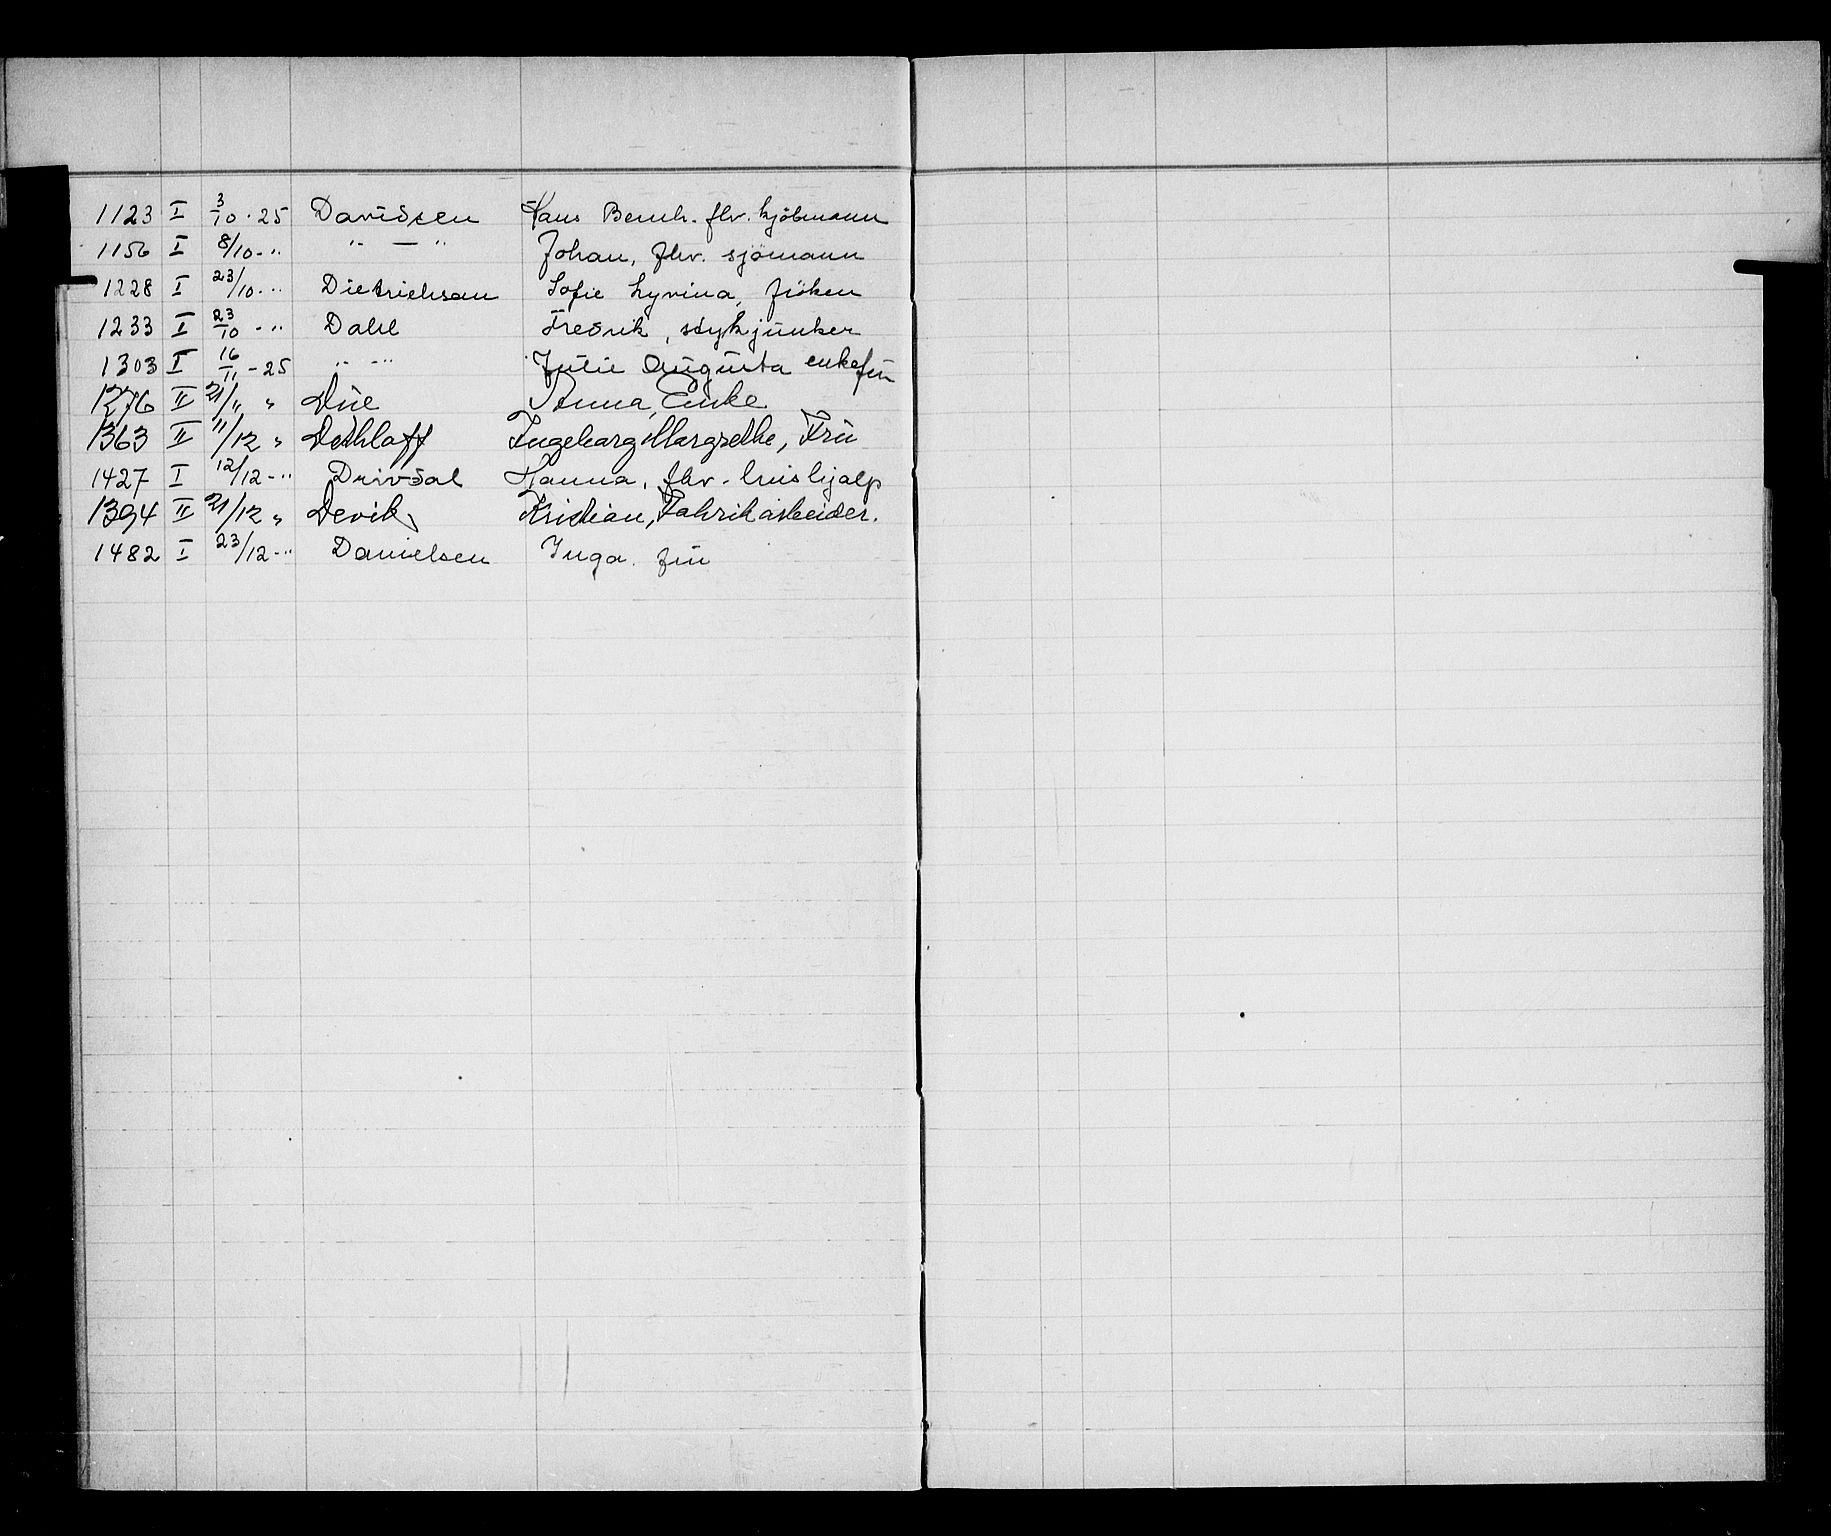 1123 I 3/10 · 25 Davidsen Hans Bernh. fhv. kjöbmann
1156 I 8/10 - " " — " Johan, fhv. sjömann
1228 I 23/10 - " Dietrichsen Sofie Lyvina, fröken
1233 I 23/10 - " Dahl Fredrik, stykjunker
1303 I 16/11 - 25 " - " Julie Augusta enkefru
1276 II 21/11 " Due Anna, Enke
1363 II 11/12 " Dethloff Ingeborg Margrethe, Fru
1427 I 12/12 - " Drivdal Hanna, fhv. hushjalp
1394 II 21/12 " Devik, Kristian, Fabrikarbeider.
1482 I 23/12 - " Danielsen Inga. fru